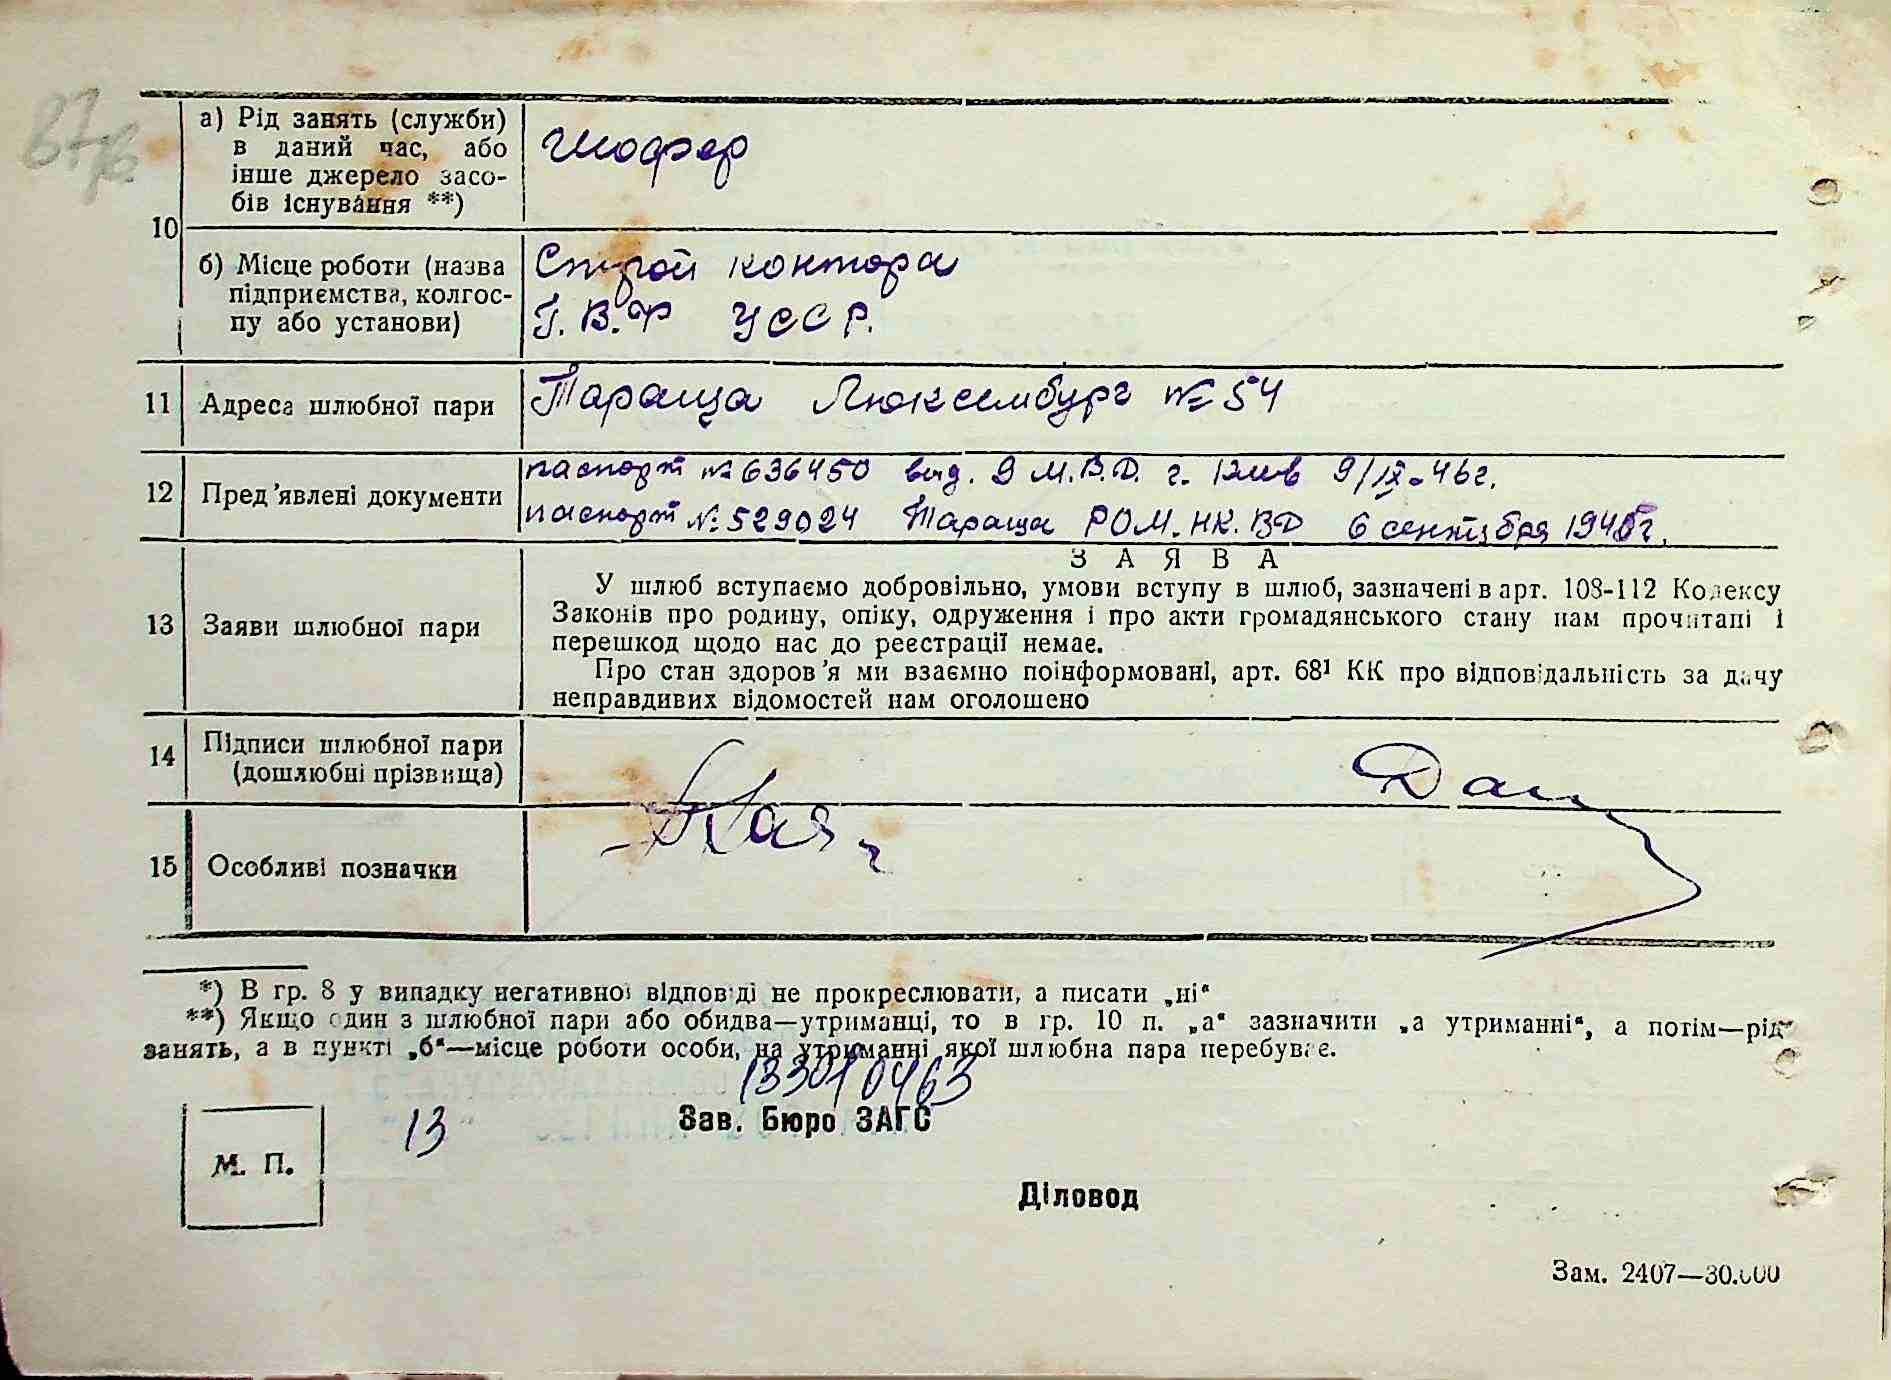 87
а) Рід занять (служби)
в даний час, або
інше джерело засо-
бів існування **)
Шофер
10
б) Місце роботи (назва
підприємства, колгос-
пу або установи)
Строй контора
Г.В.Ф УССР.
11 Адреса шлюбної пари Тараща Люксембург № 54
12 Пред'явлені документи
паспорт № 636450 выд. 9 М.В.Д. г. Киев 9/IX-46г.
паспорт № 529024 Тараща РОМ.НК.ВД 6 сентября 1945г.
З А Я В А
13 Заяви шлюбної пари
У шлюб вступаємо добровільно, умови вступу в шлюб, зазначені в арт. 108-112 Кодексу
Законів про родину, опіку, одруження і про акти громадянського стану нам прочитані і
перешкод щодо нас до реєстрації немає.
Про стан здоров'я ми взаємно поінформовані, арт. 68¹ КК про відповідальність за дачу
неправдивих відомостей нам оголошено
14 Підписи шлюбної пари
(дошлюбні прізвища)
15 Особливі позначки
*) В гр. 8 у випадку негативної відповіді не прокреслювати, а писати „ні“
**) Якщо один з шлюбної пари або обидва—утриманці, то в гр. 10 п. „а“ зазначити „а утриманні“, а потім—рід
занять, а в пункті „б“—місце роботи особи, на утриманні якої шлюбна пара перебуває.
13
Зав. Бюро ЗАГС
М. П.
Діловод
Зам. 2407—30.000